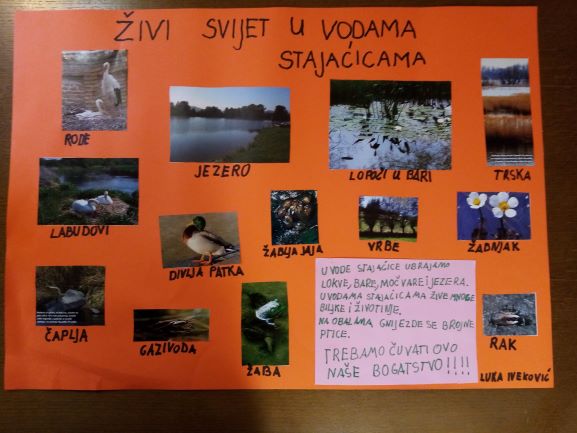 ŽIVI SVIJET U VODAMA
STAJAĆICAMA
RODE
JEZERO
LOPOČI U BARI
TRSKA
LABUDOVI
DIVLJA PATKA
ŽABLJA JAJA
VRBE
ŽABNJAK
ČAPLJA
GAZIVODA
ŽABA
U VODE STAJAĆICE UBRAJAMO
LOKVE, BARE, MOČVARE I JEZERA.
U VODAMA STAJAĆICAMA ŽIVE MNOGE
BILJKE I ŽIVOTINJE.
NA OBALAMA GNIJEZDE SE BROJNE
PTICE.
TREBAMO ČUVATI OVO
NAŠE BOGATSTVO!!!!
RAK
LUKA IVEKOVIĆ